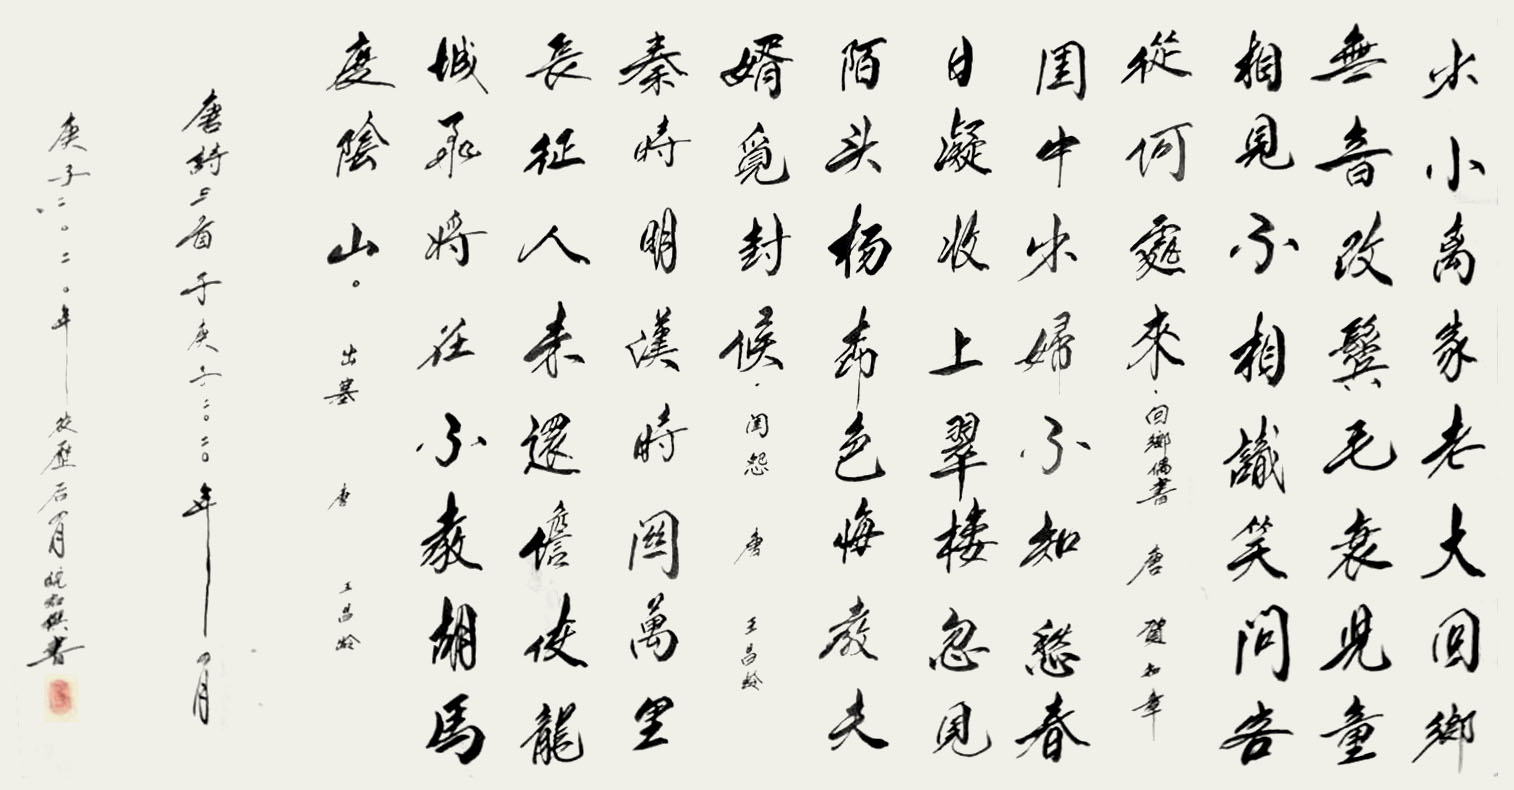 少小离家老大回鄉
無音改鬓毛衰児童
相見不相識笑問客
從何處來.回鄉偶書 唐 賀知章
閨中少婦不知愁春
日凝收上翠楼忽見
陌头杨柳色悔教夫
婿覓封候.闺怨 唐 王昌龄
秦時明漢時関萬里
長征人未還儋使龍
城飛將在不教胡馬
度陰山。出塞 唐 王昌龄
唐詩三首子庚二〇二〇年四月
庚子二〇二〇年农歷后四月書